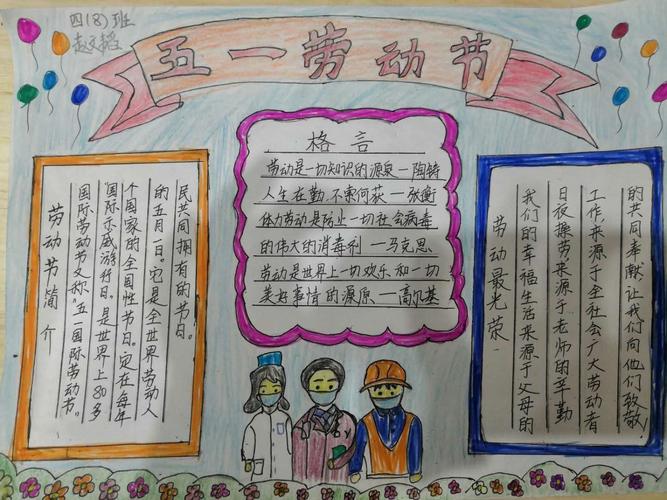 四(8)班
赵文韬
五一劳动节
劳动节简介
国际劳动节又称"五一国际劳动节。
国际示威游行日。是世界上80多
个国家的全国性节日。定在每年
的五月一日。它是全世界劳动人
民共同拥有的节日。
格言
劳动是一切知识的源泉—陶铸
人生在勤,不索何获—张衡
体力劳动是防止一切社会病毒
的伟大的消毒剂—马克思
劳动是世界上一切欢乐和一切
美好事情的源原—高尔基
劳动最光荣
我们的幸福生活来源于父母的
日夜操劳来源于老师的辛勤
工作,来源于全社会广大劳动者
的共同奉献让我们向他们致敬